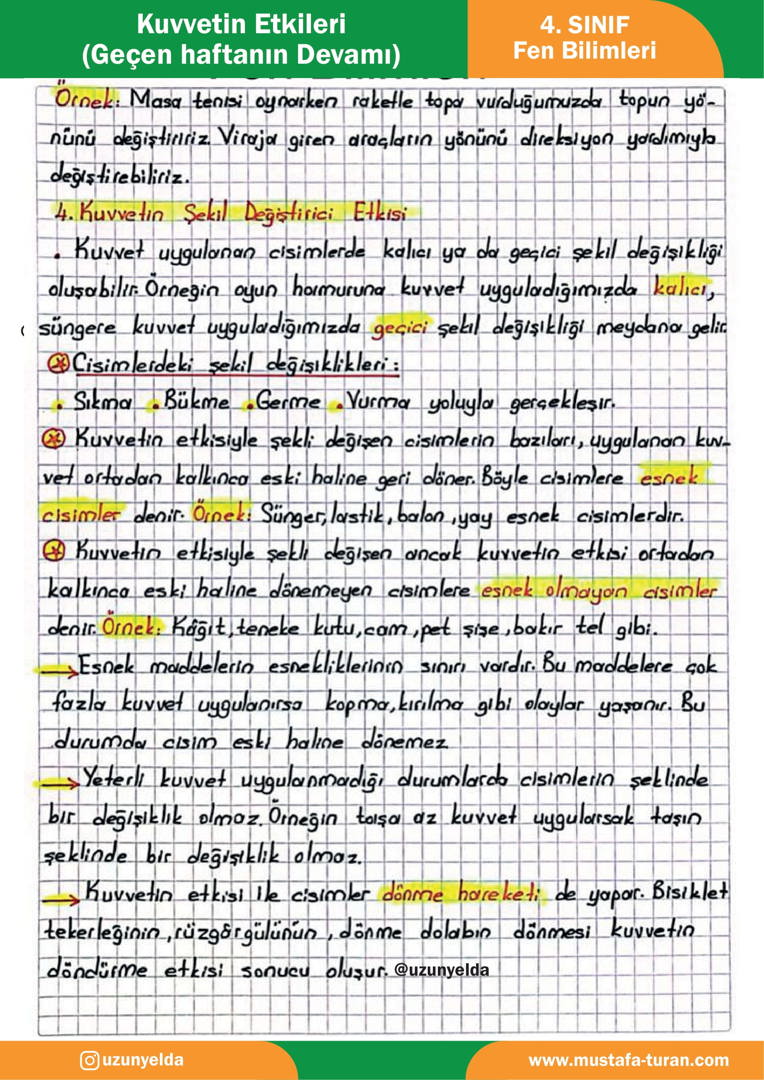 Kuvvetin Etkileri
(Geçen haftanın Devamı)
4. SINIF
Fen Bilimleri
Örnek: Masa tenisi oynarken raketle topa vurduğumuzda topun yö-
nünü değiştiririz. Viraja giren araçların yönünü direksiyon yardımıyla
değiştirebiliriz.
4. Kuvvetin Şekil Değiştirici Etkisi
. Kuvvet uygulanan cisimlerde kalıcı ya da geçici şekil değişikliği
oluşabilir. Örneğin oyun hamuruna kuvvet uyguladığımızda kalıcı,
süngere kuvvet uyguladığımızda geçici şekil değişikliği meydana gelir
Cisimlerdeki şekil değişiklikleri:
. Sıkma . Bükme . Germe . Vurma yoluyla gerçekleşir.
Kuvvetin etkisiyle şekli değişen cisimlerin bazıları, uygulanan kuv-
vet ortadan kalkınca eski haline geri döner. Böyle cisimlere esnek
cisimler denir. Örnek: Sünger, lastik, balon, yay esnek cisimlerdir.
Kuvvetin etkisiyle şekli değişen ancak kuvvetin etkisi ortadan
kalkınca eski haline dönemeyen cisimlere esnek olmayan cisimler
denir. Örnek: Kâğıt, teneke kutu, cam, pet şişe, bakır tel gibi.
→ Esnek maddelerin esnekliklerinin sınırı vardır. Bu maddelere çok
fazla kuvvet uygulanırsa kopma, kırılma gibi olaylar yaşanır. Bu
durumda cisim eski haline dönemez
→ Yeterli kuvvet uygulanmadığı durumlarda cisimlerin şeklinde
bir değişiklik olmaz. Örneğin taşa az kuvvet uygularsak taşın
şeklinde bir değişiklik olmaz.
→ Kuvvetin etkisi ile cisimler dönme hareketi de yapar. Bisiklet
tekerleğinin, rüzgârgülünün, dönme dolabın dönmesi kuvvetin
döndürme etkisi sonucu oluşur. @uzunyelda
uzunyelda
www.mustafa-turan.com